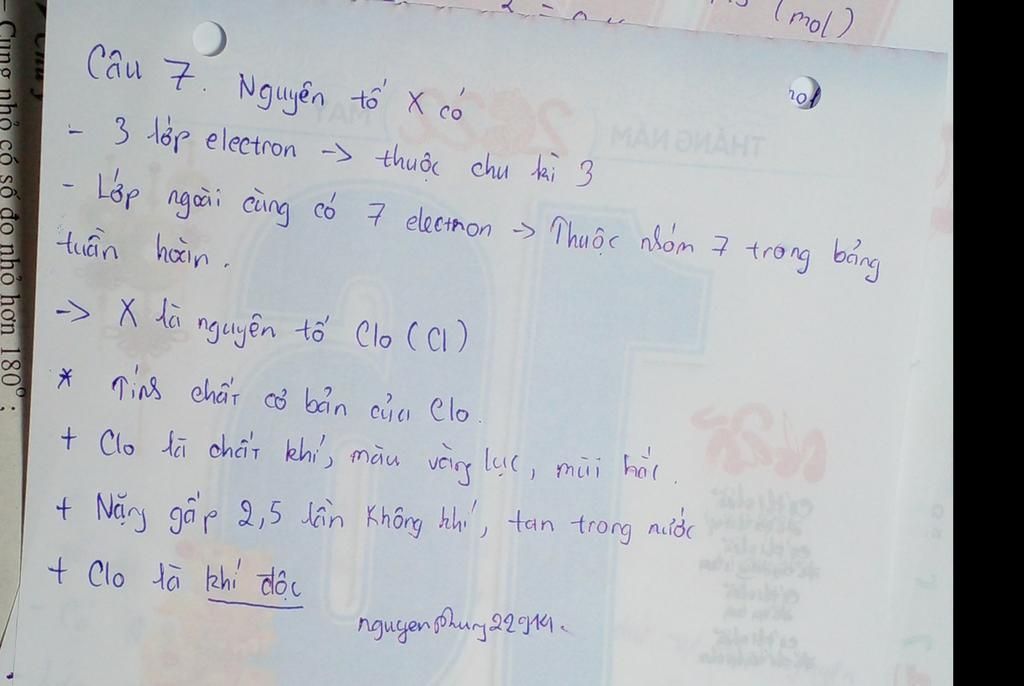 (mol)
Câu 7. Nguyên tố X có
- 3 lớp electron -> thuộc chu kì 3
- Lớp ngoài cùng có 7 electron -> Thuộc nhóm 7 trong bảng
tuần hoàn.
-> X là nguyên tố Clo (Cl)
* Tính chất cơ bản của Clo.
+ Clo là chất khí, màu vàng lục, mùi hắc.
+ Nặng gấp 2,5 lần không khí, tan trong nước
+ Clo là khí độc
nguyenphung22914.
- Cung nhỏ có số đo nhỏ hơn 180° ;
THÁNG NĂM
2022
16